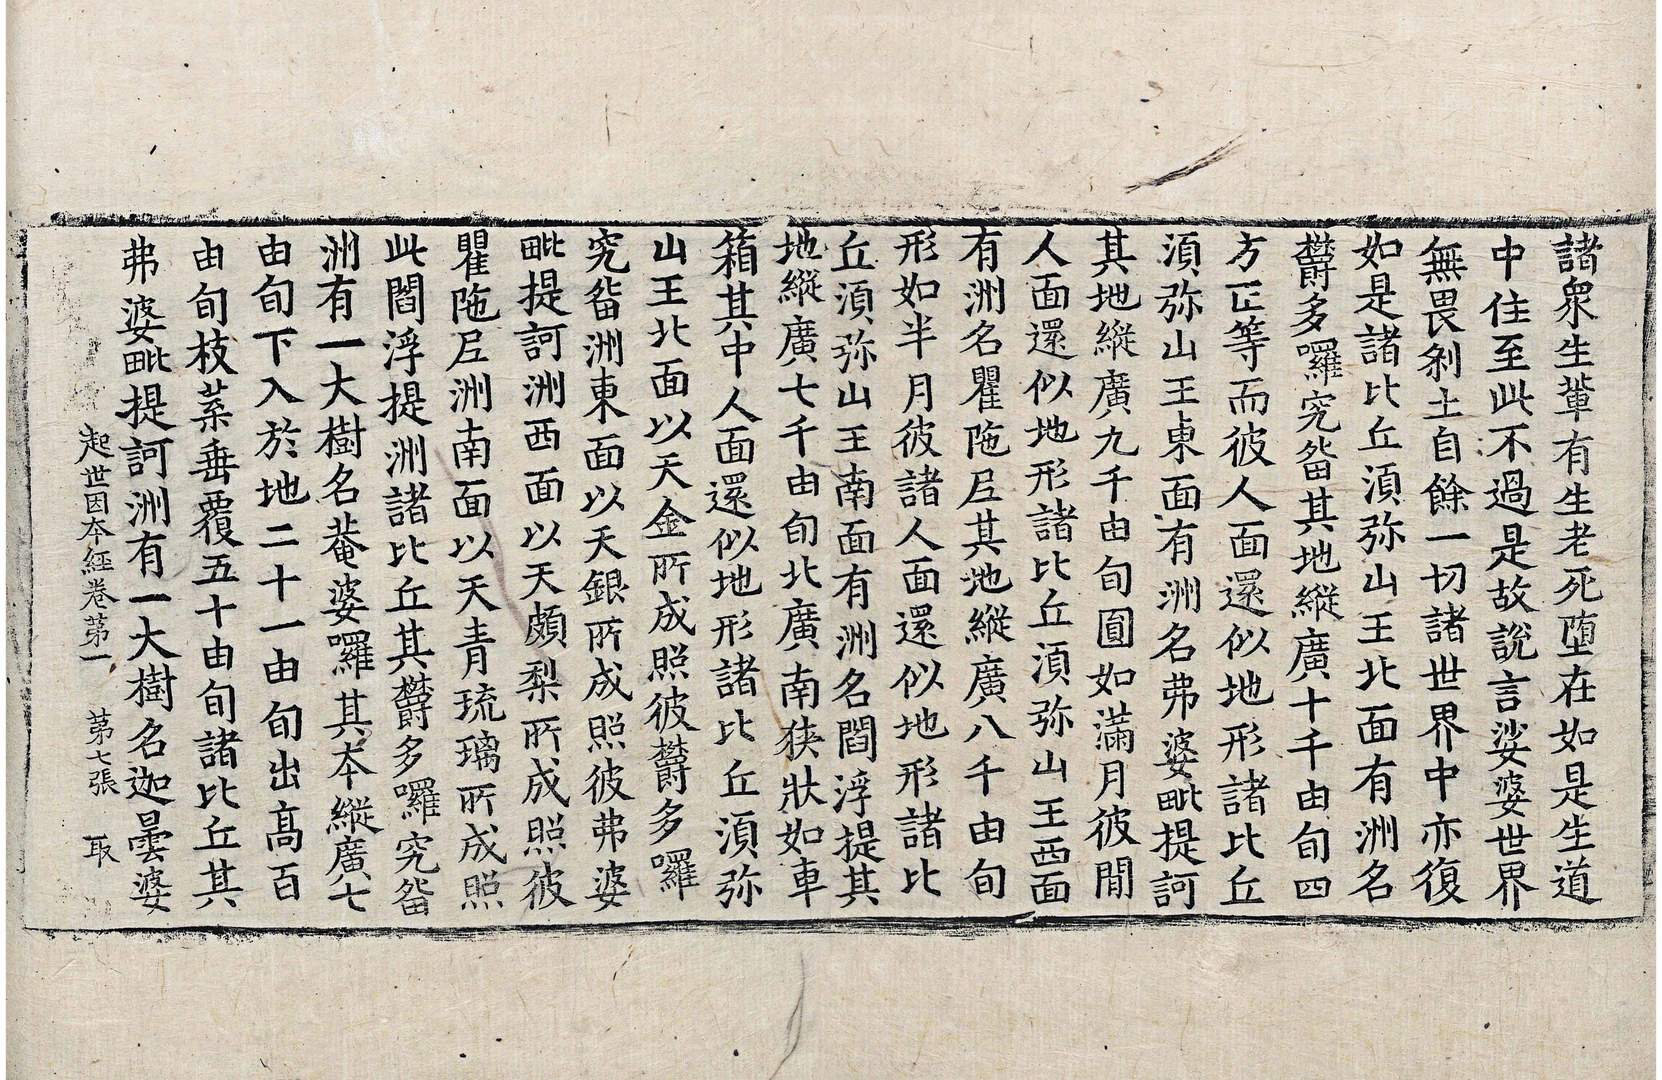 諸衆生軰有生老死堕在如是生道
中住至此不過是故說言娑婆世界
無畏刹土自餘一切諸世界中亦復
如是諸比丘湏弥山王北面有洲名
欝多囉究畱其地縱廣十千由旬四
方正等而彼人面還似地形諸比丘
湏弥山王東面有洲名弗婆毗提訶
其地縱廣九千由旬圓如滿月彼閒
人面還似地形諸比丘湏弥山王西面
有洲名瞿陁尼其地縱廣八千由旬
形如半月彼諸人面還似地形諸比
丘湏弥山王南面有洲名閻浮提其
地縱廣七千由旬北廣南狹狀如車
箱其中人面還似地形諸比丘湏弥
山王北面以天金所成照彼欝多囉
究畱洲東面以天銀所成照彼弗婆
毗提訶洲西面以天頗梨所成照彼
瞿陁尼洲南面以天青琉璃所成照
此閻浮提洲諸比丘其欝多囉究畱
洲有一大樹名菴婆囉其本縱廣七
由旬下入於地二十一由旬出高百
由旬枝葉垂覆五十由旬諸比丘其
弗婆毗提訶洲有一大樹名迦曇婆
起世因本經卷第一 第七張 取